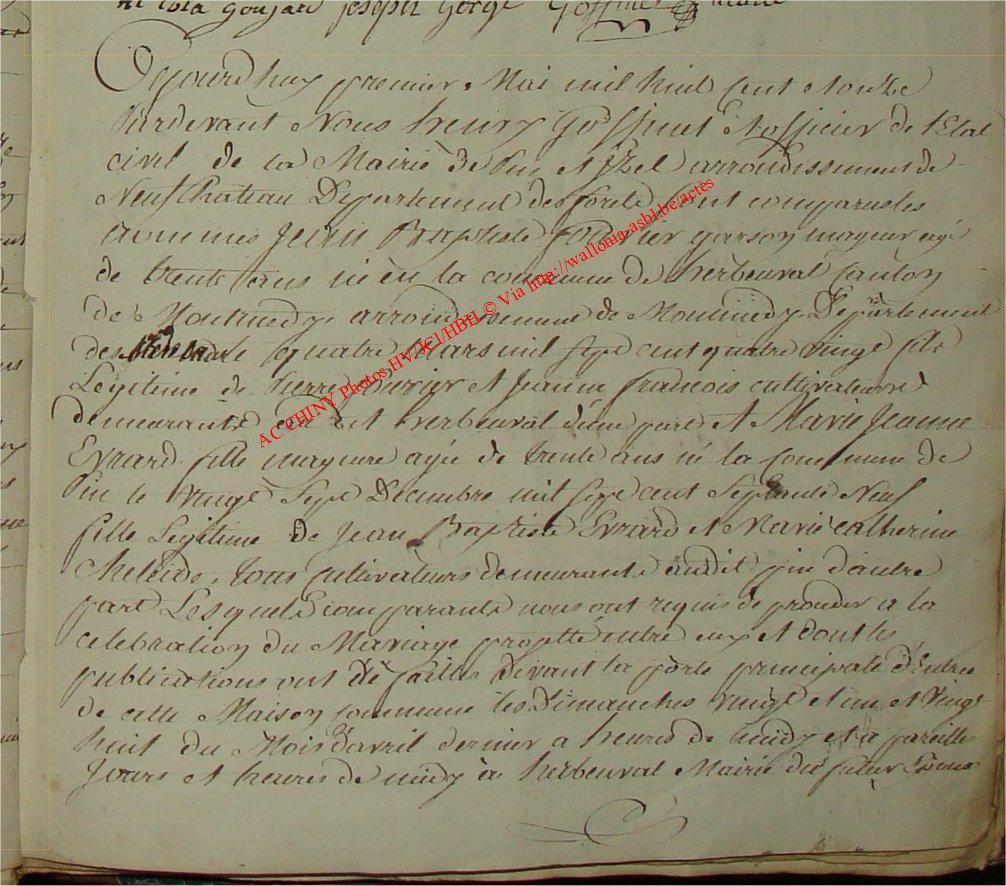 Nicola Goujard Joseph George Goffinet maire
Aujourd'huy premier Mai mil huit cent et onze
Pardevant Nous henry Goffinet officier de l'Etat
civil de la Mairie de Pin et Izel arrondissement de
Neufchateau Departement des forets sont comparus les
nommés Jean Baptiste garson mayeur agé
de trente ans né en la commune de herbeuval Canton
de Montmedy arrondissement de Montmedy Departement
de la le quatre Mars mil sept cent quatre vingt fils
Légitime de pierre et Jeanne francois cultivateurs
demeurants au dit herbeuval d'une part et Marie Jeanne
Evrard fille mayeure agée de trente ans né la Commune de
Pin le vingt sept Decembre mil sept cent septante Neuf
fille Légitime de Jean Baptiste Evrard et Marie Catherine
tous cultivateurs demeurants audit pin d'autre
part Lesquels comparants nous ont requis de proceder a la
celebration du Mariage projetté entre eux et dont les
publications ont été faittes devant la porte principale d'entree
de cette Maison commune les Dimanches vingt et un et vingt
huit du Mois d'avril dernier a heures de midy et a pareilles
Jours et heures de midy à herbeuval Mairie du futur Epoux
AC CHINY Photos HV/JCl/HBH © Via http://wallonia-asbl.be/actes